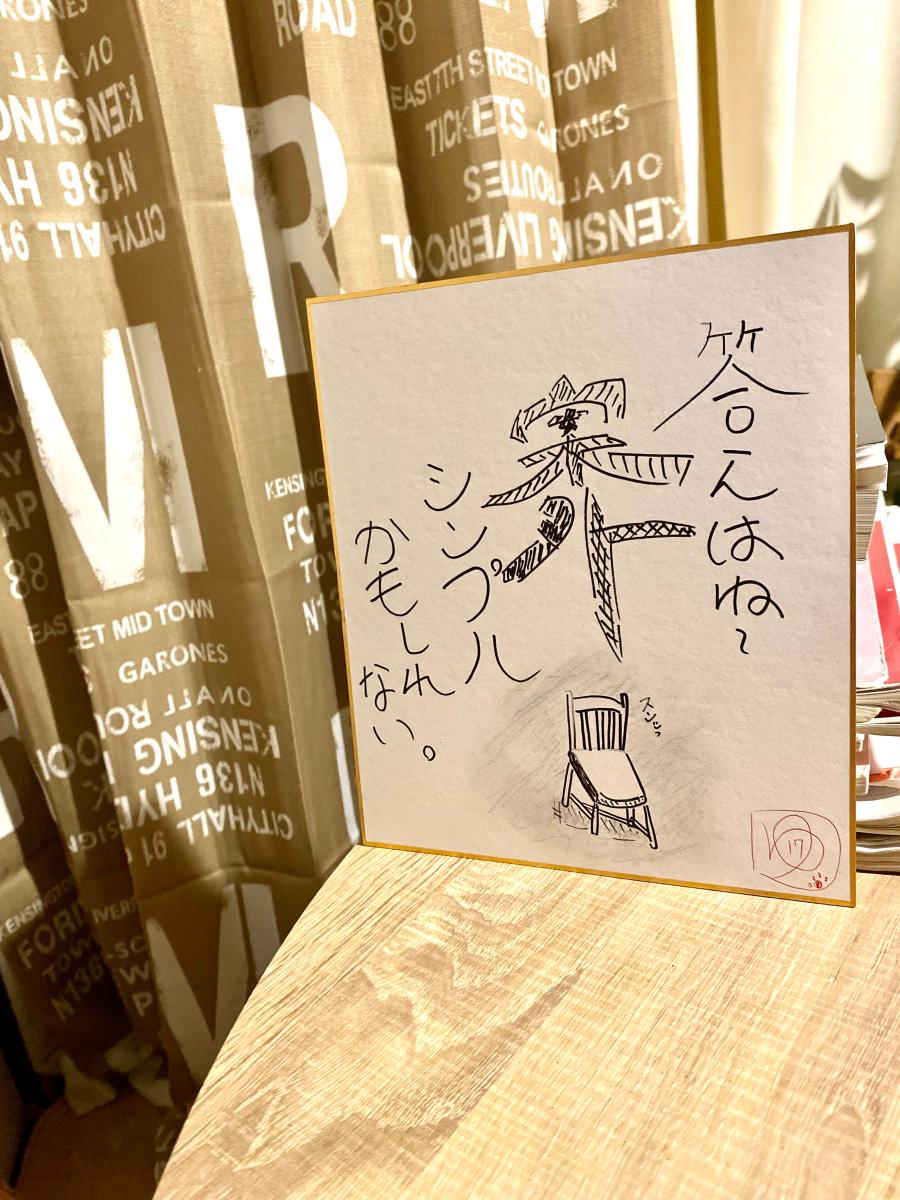 ROAD
88
EAST 7TH STREET MID TOWN
TICKETS GARONES
ON ALL ROUTES
KENSING LIVERPOOL
ON ALL
KENSING
N136 HY
CITYHALL 91
R
M
KENSING
88
EAST
ET MID TOWN
GARONES
ON ALL ROU
KENSING
N136 HY
CITYHALL 91
KENSINGTO
FORD
TOW
N136
M
答えはね〜
案外
シンプル
かもしれ
ない。
ゆ
17